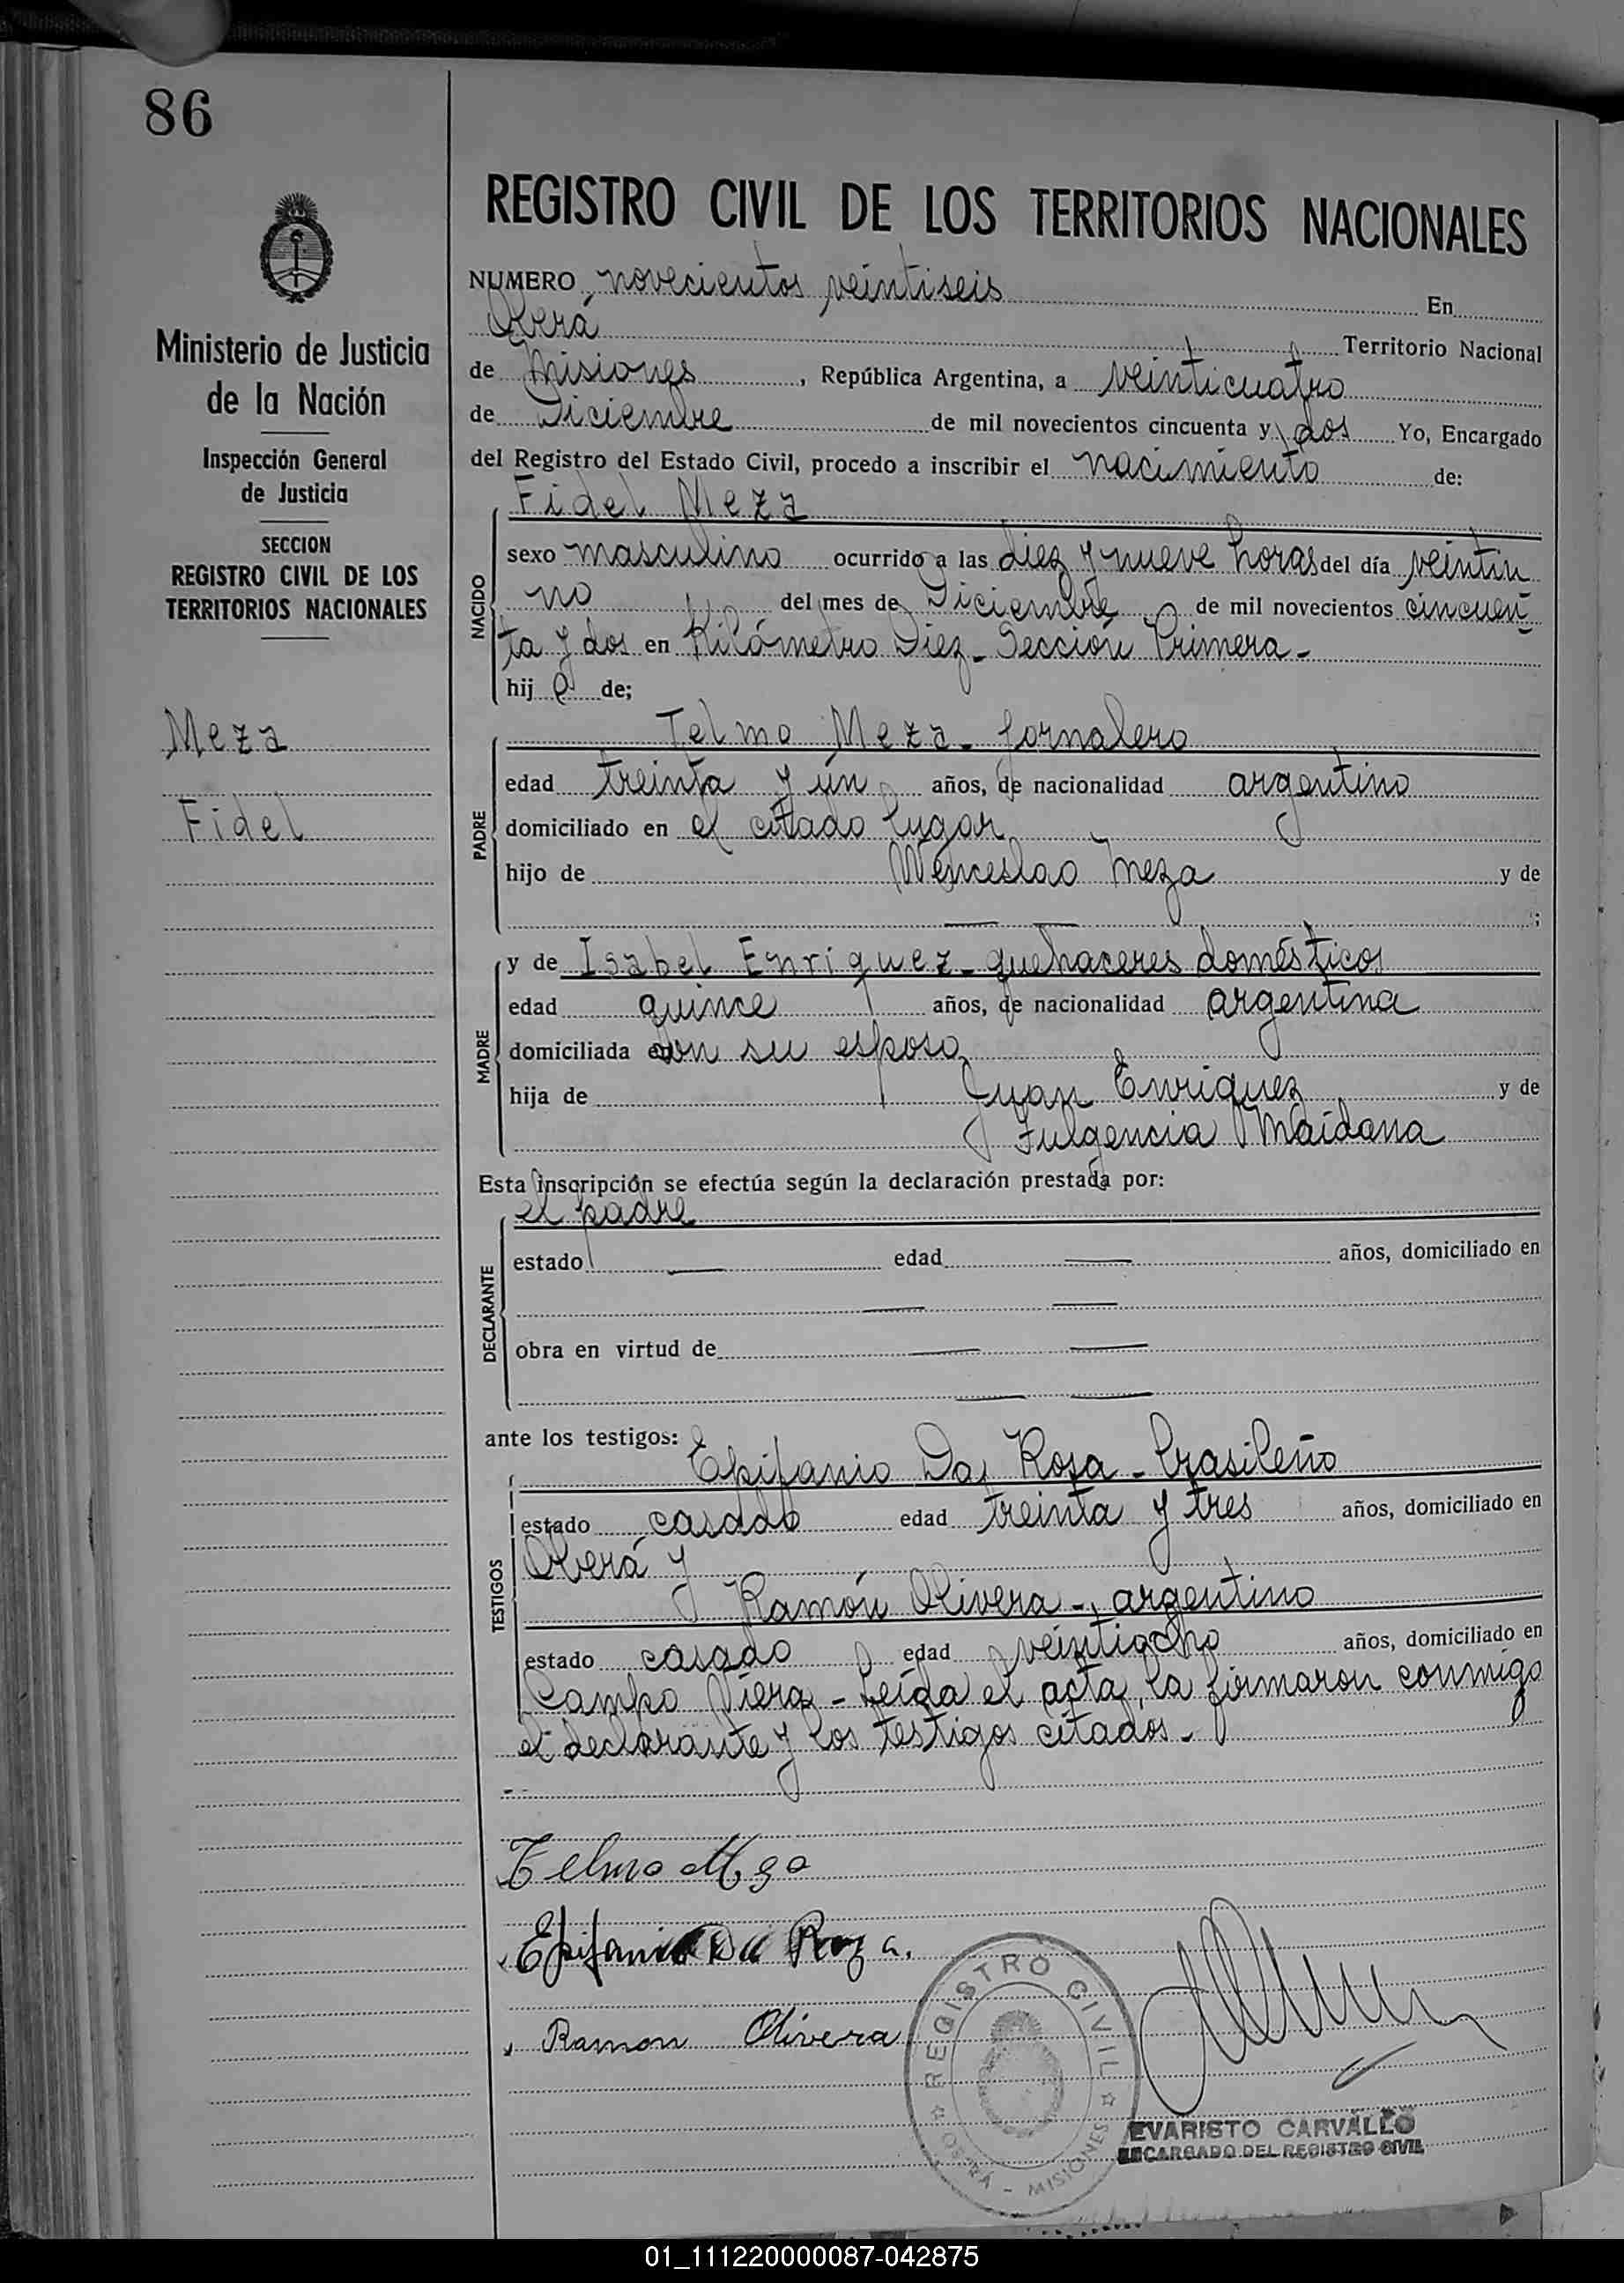 86
REGISTRO CIVIL DE LOS TERRITORIOS NACIONALES
NUMERO novecientos veintiseis En
Oberá Territorio Nacional
de Misiones, República Argentina, a veinticuatro
de Diciembre de mil novecientos cincuenta y dos Yo, Encargado
del Registro del Estado Civil, procedo a inscribir el nacimiento de:
Fidel Meza
NACIDO
sexo masculino ocurrido a las diez y nueve horas del día veintiu
no del mes de Diciembre de mil novecientos cincuen
ta y dos en Kilómetro Diez - Sección Primera -
hijo de;
Telmo Meza - jornalero
PADRE
edad treinta y un años, de nacionalidad argentino
domiciliado en el citado lugar
hijo de Wenceslao Meza y de
— — ;
MADRE
y de Isabel Enriquez - quehaceres domésticos
edad quince años, de nacionalidad argentina
domiciliada con su esposo
hija de Juan Enriquez y de
Fulgencia Maidana
Esta inscripción se efectúa según la declaración prestada por:
el padre
DECLARANTE
estado — edad — años, domiciliado en
— —
obra en virtud de — —
— —
ante los testigos:
Epifanio Da Rosa - brasileño
TESTIGOS
estado casado edad treinta y tres años, domiciliado en
Oberá y
Ramón Olivera - argentino
estado casado edad veintiocho años, domiciliado en
Campo Viera - Leída el acta, la firmaron conmigo
el declarante y los testigos citados -
Telmo Meza
Epifanio Da Roza.
Ramon Olivera
REGISTRO CIVIL
OBERA - MISIONES
EVARISTO CARVALLO
ENCARGADO DEL REGISTRO CIVIL
Ministerio de Justicia
de la Nación
Inspección General
de Justicia
SECCION
REGISTRO CIVIL DE LOS
TERRITORIOS NACIONALES
Meza
Fidel
01_111220000087-042875